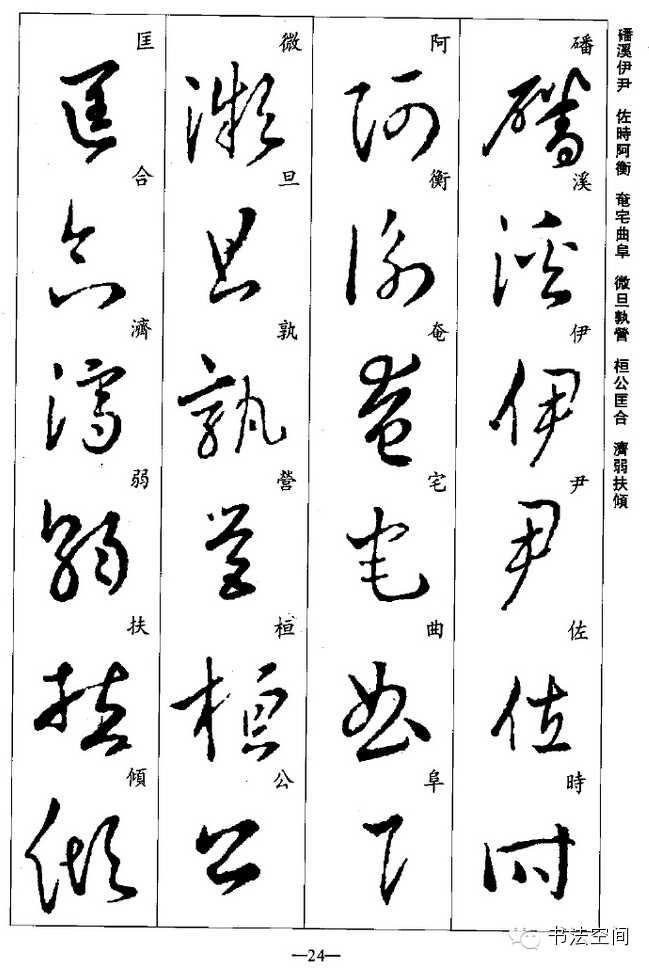 磻溪伊尹 佐時阿衡 奄宅曲阜 微旦孰營 桓公匡合 濟弱扶傾
磻溪伊尹佐時
阿衡奄宅曲阜
微旦孰營桓公
匡合濟弱扶傾
—24—
书法空间